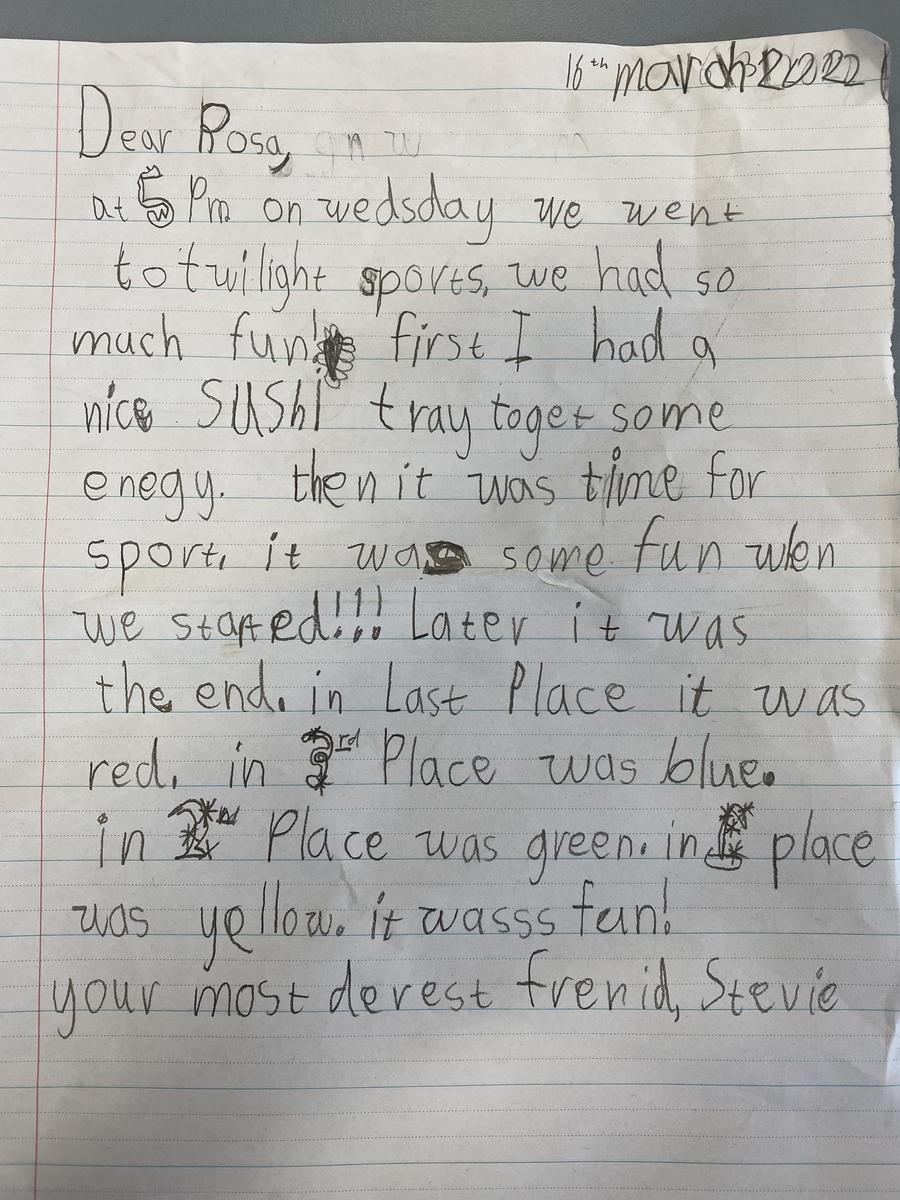 16th march 2022
Dear Rosa,
at 5 Pm on wedsday we went
to twilight sports, we had so
much fun! first I had a
nice SUSHI tray toget some
enegy. then it was time for
sport, it was some fun when
we started!!! Later it was
the end. in Last Place it was
red. in 3rd Place was blue.
in 2nd Place was green. in 1 place
was yellow. it wasss fun!
your most derest frenid, Stevie